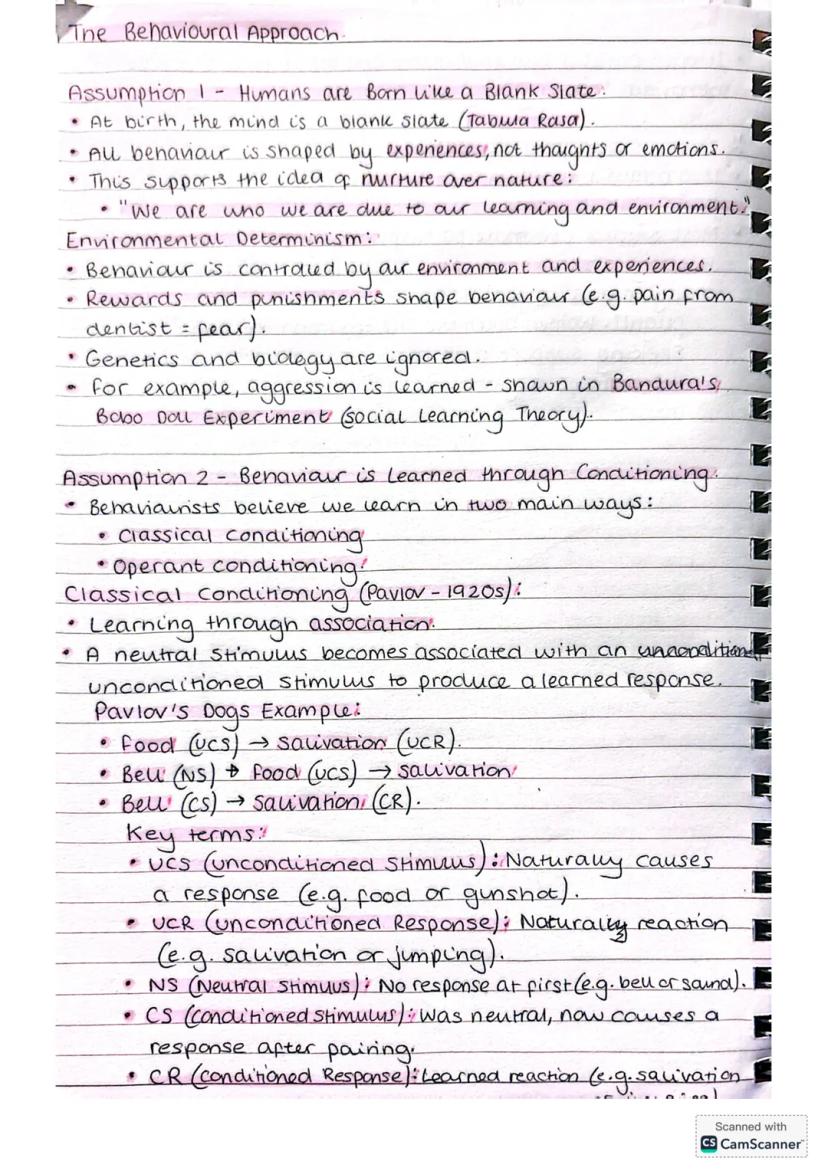 The Behavioural Approach.
Assumption 1 - Humans are Born Like a Blank Slate:
• At birth, the mind is a blank slate (Tabula Rasa).
• All behaviour is shaped by experiences, not thoughts or emotions.
• This supports the idea of nurture over nature:
• "We are who we are due to our learning and environment."
Environmental Determinism:
• Behaviour is controlled by our environment and experiences.
• Rewards and punishments shape behaviour (e.g. pain from
dentist = fear).
• Genetics and biology are ignored.
• For example, aggression is learned - shown in Bandura's
Bobo Doll Experiment (Social Learning Theory).
Assumption 2 - Behaviour is Learned through Conditioning.
• Behaviourists believe we learn in two main ways:
• Classical conditioning
• Operant conditioning.
Classical Conditioning (Pavlov - 1920s):
• Learning through association.
• A neutral stimulus becomes associated with an
unconditioned stimulus to produce a learned response.
Pavlov's Dogs Example:
• Food (UCS) → Salivation (UCR).
• Bell (NS) + Food (UCS) → Salivation
• Bell (CS) → Salivation (CR).
Key terms:
• UCS (Unconditioned Stimulus): Naturally causes
a response (e.g. food or gunshot).
• UCR (Unconditioned Response): Naturally reaction
(e.g. salivation or jumping).
• NS (Neutral Stimulus): No response at first (e.g. bell or sound).
• CS (Conditioned Stimulus): Was neutral, now causes a
response after pairing.
• CR (Conditioned Response): Learned reaction (e.g. salivation
Scanned with
CS CamScanner